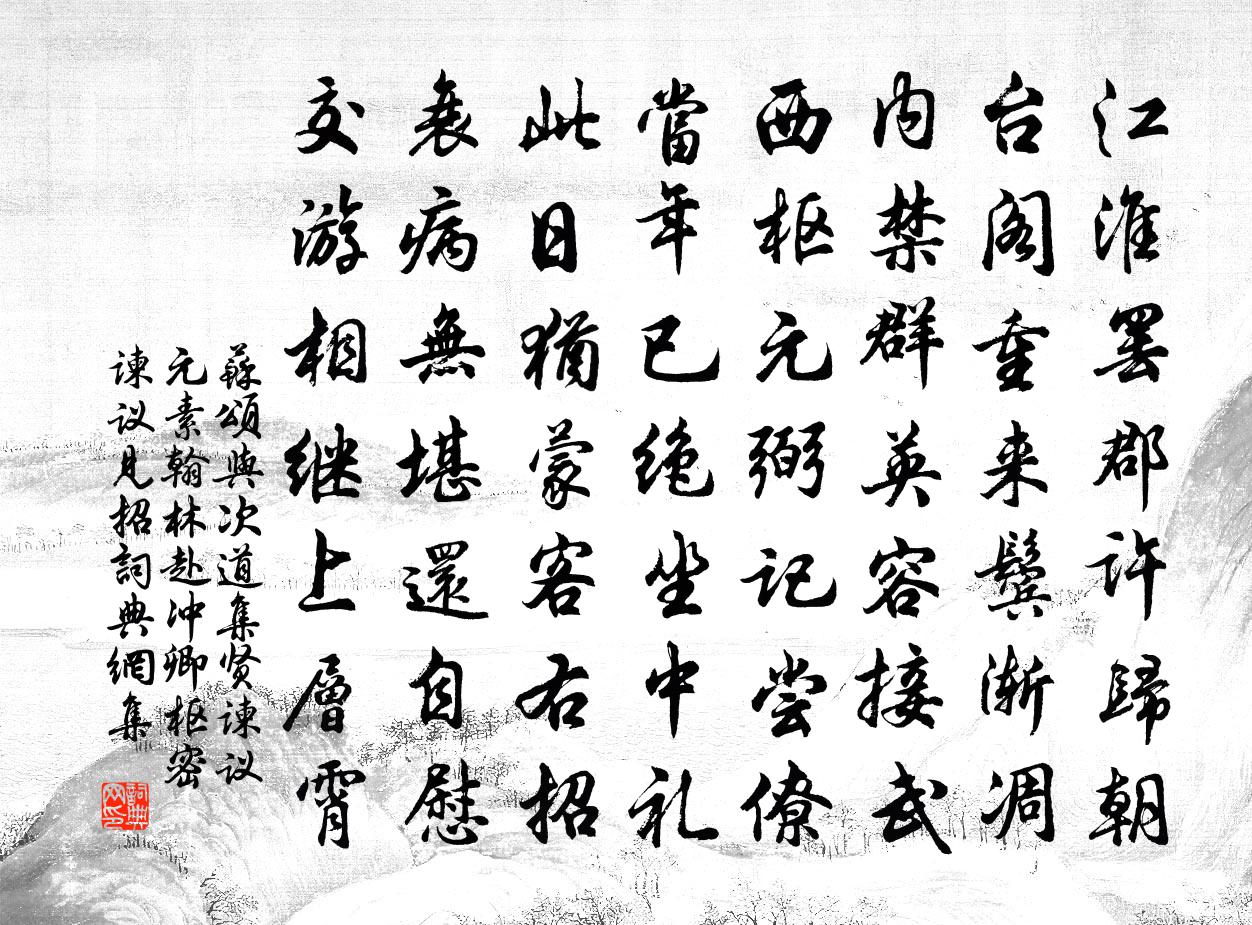 江淮罢郡许歸朝
台阁重来鬓渐凋
内禁群英容接武
西枢元弼记尝僚
當年已绝坐中礼
此日犹蒙客右招
衰病無堪還自慰
交游相继上層霄
蘇頌與次道集贤谏议
元素翰林赴冲卿枢密
谏议见招詞典網集
詞典網印